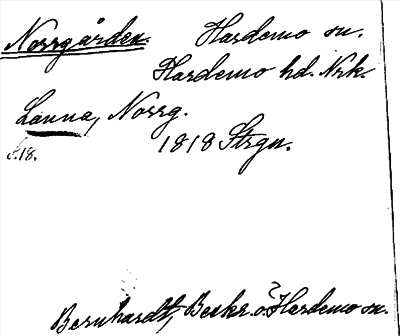 Norrgården Hardemo sn.
Hardemo hd. Nrk.
Lanna, Norrg.
s.18. 1818 Strgn.
Bernhardt, Beskr. ö. Hardemo sn.